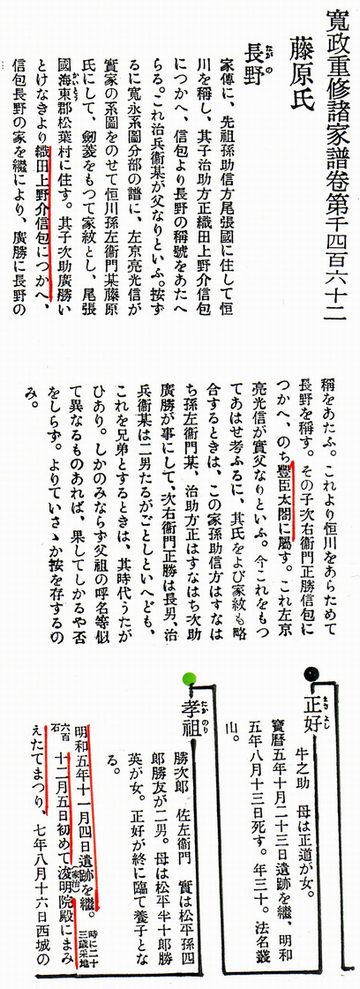 寛政重修諸家譜卷第千四百六十二
藤原氏
長野
ながの
家傳に、先祖孫助信方尾張國に住して恒
川を稱し、其子治助方正織田上野介信包
につかへ、信包より長野の稱號をあたへ
らる。これ治兵衞某が父なりといふ。按ず
るに寛永系圖分部の譜に、左京亮光信が
實家の系圖をのせて恒川孫左衞門某藤原
氏にして、劔菱をもつて家紋とし、尾張
國海東郡松葉村に住す。其子次助廣勝い
とけなきより織田上野介信包につかへ、
信包長野の家を繼により、廣勝に長野の
稱をあたふ。これより恒川をあらためて
長野を稱す。その子次右衞門正勝信包に
つかへ、のち豐臣太閤に屬す。これ左京
亮光信が實父なりといふ。今これをもつ
てあはせ考ふるに、其氏をよび家紋も略
合するときは、この家孫助信方はすなは
ち孫左衞門某、治助方正はすなはち次助
廣勝が事にして、次右衞門正勝は長男、治
兵衞某は二男たるがごとしといへども、
これを兄弟とするときは、其時代うたが
ひあり。しかのみならず父祖の呼名等似
て異なるものあれば、果してしかるや否
をしらず。よりていさゝか按を存するの
み。
正好
まさよし
牛之助 母は正道が女。
寶暦五年十月二十三日遺跡を繼、明和
五年八月十三日死す。年三十。法名叢
山。
孝祖
たかのり
勝次郎 佐左衞門 實は松平孫四
郎勝友が二男。母は松平半十郎勝
英が女。正好が終に臨て養子とな
る。
明和五年十一月四日遺跡を繼。時に二十三歳采地
六百石 十二月五日初めて浚明院殿(家治)にまみ
えたてまつり、七年八月十六日西城の